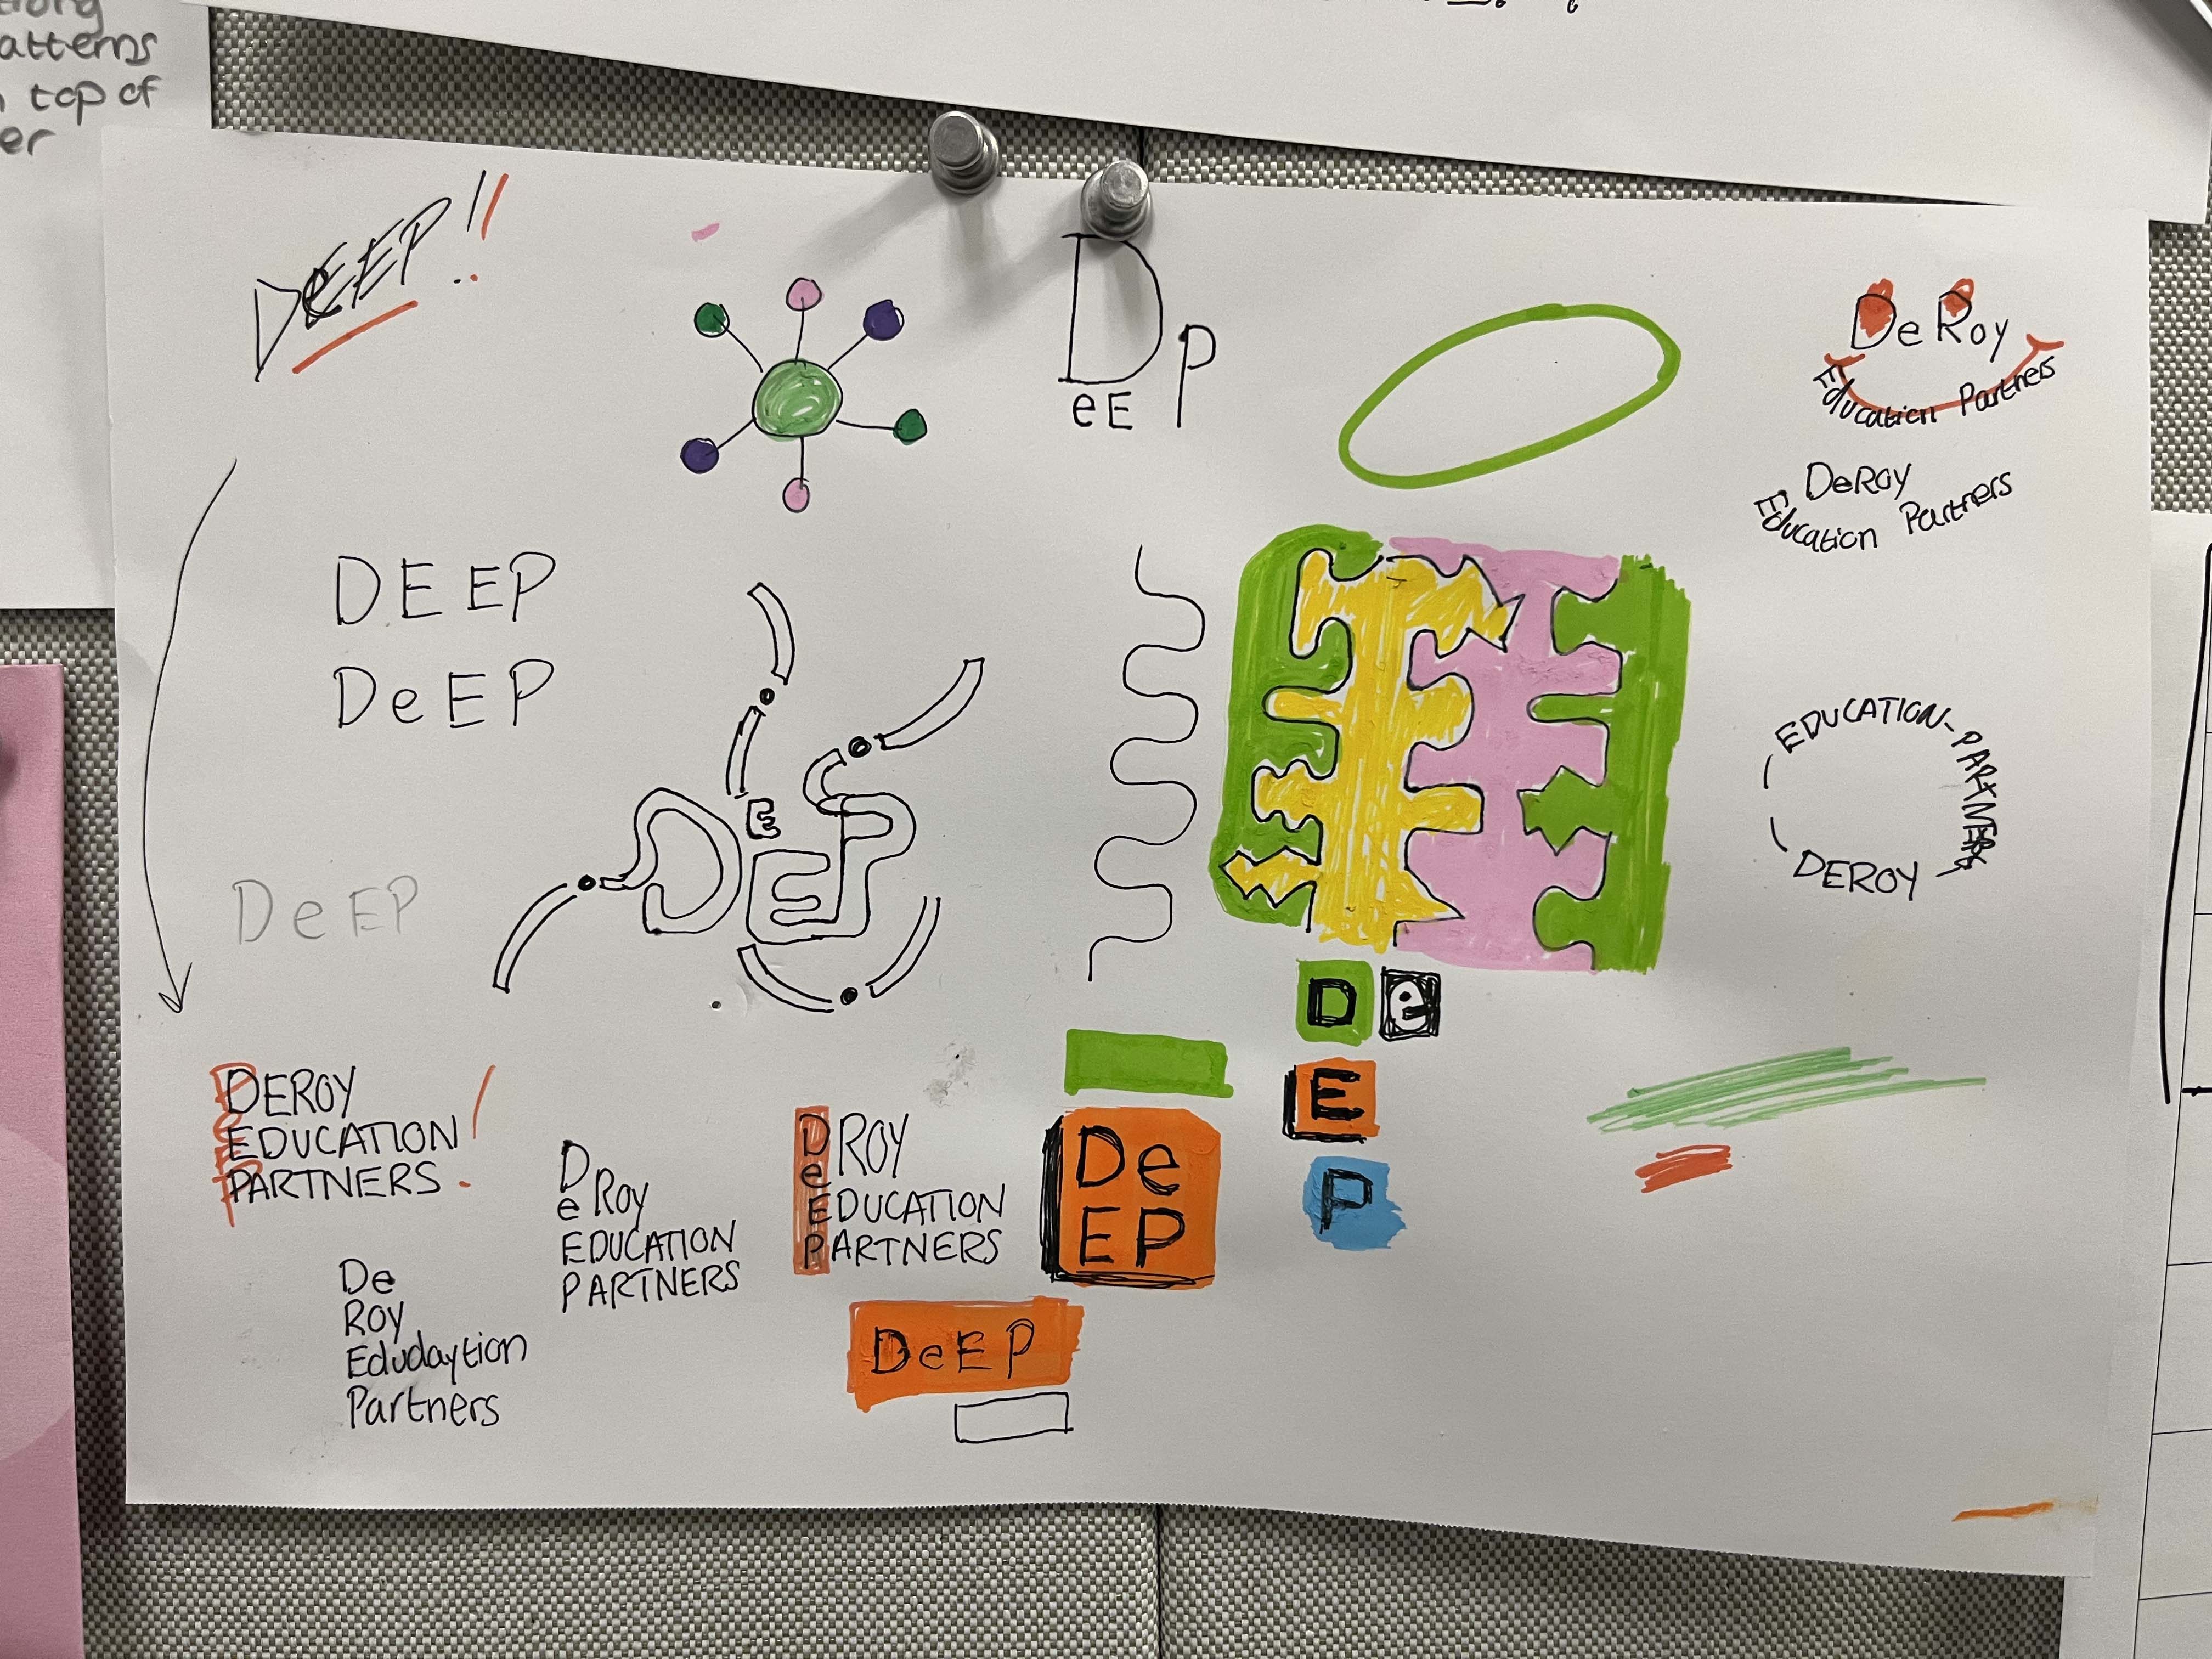 atterns
top of
er
DeEEP!!
D
eE
P
DeRoy
Education Partners
DeRoy
Education Partners
DEEP
DeEP
DeEP
D
E
E
P
EDUCATION-PARTNERS
DEROY
D e
E
P
DEROY
EDUCATION
PARTNERS!
De
Roy
Edudaytion
Partners
D
e Roy
EDUCATION
PARTNERS
DROY
e
EDUCATION
PARTNERS
De
EP
DeEP